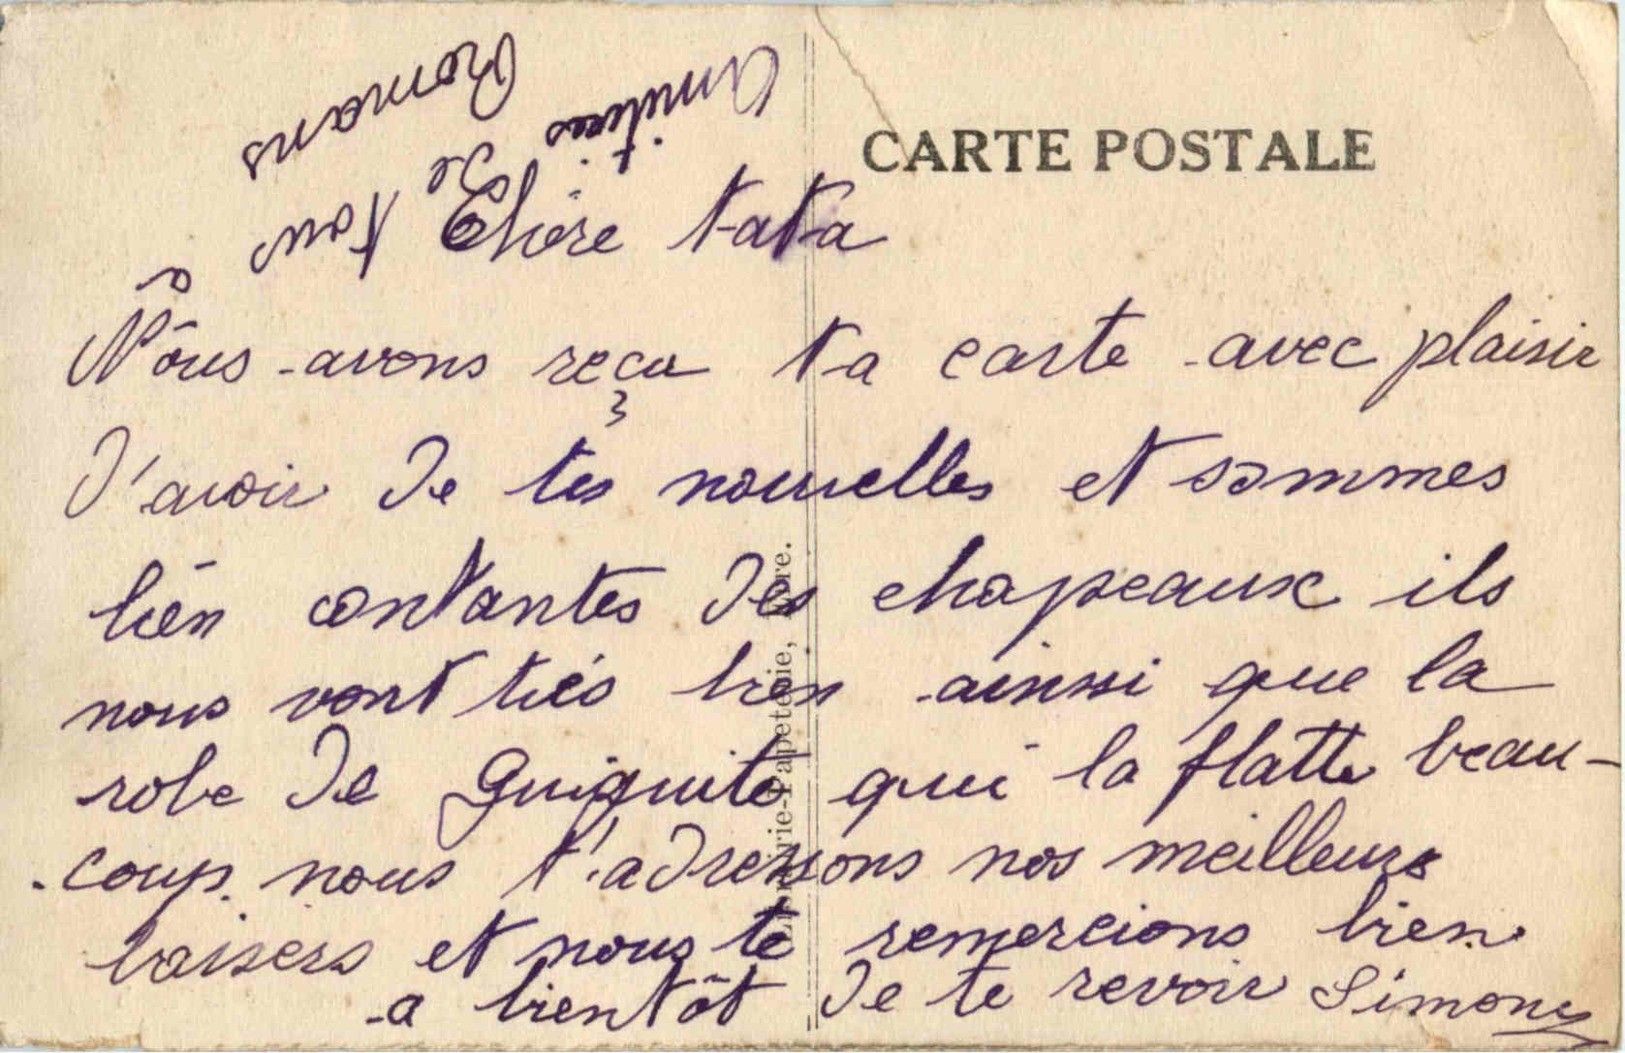 CARTE POSTALE
Chère tata
Nous avons reçu ta carte avec plaisir
d'avoir de tes nouvelles et sommes
bien contantes des chapeaux ils
nous vont très bien ainssi que la
robe de Guiguite qui la flatte beau-
coup. nous t'adressons nos meilleurs
baisers et nous te remercions bien
a bientôt de te revoir Simone
Amitiées
de
Romans
à tous
Papeterie,